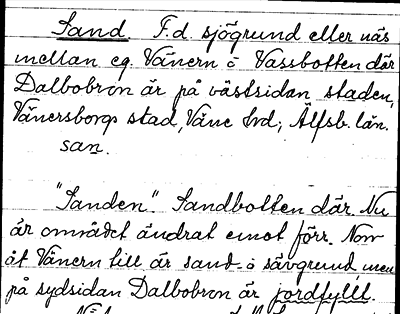 Sand. F.d. sjögrund eller näs
mellan eg. Vänern o Vassbotten där
Dalbobron är på västsidan staden,
Vänersborgs stad, Väne hrd, Älfsb. län.
san.
"Sanden". Sandbotten där. Nu
är området ändrat emot förr. Norr
åt Vänern till är sand- o sävgrund men
på sydsidan Dalbobron är jordfyllt.